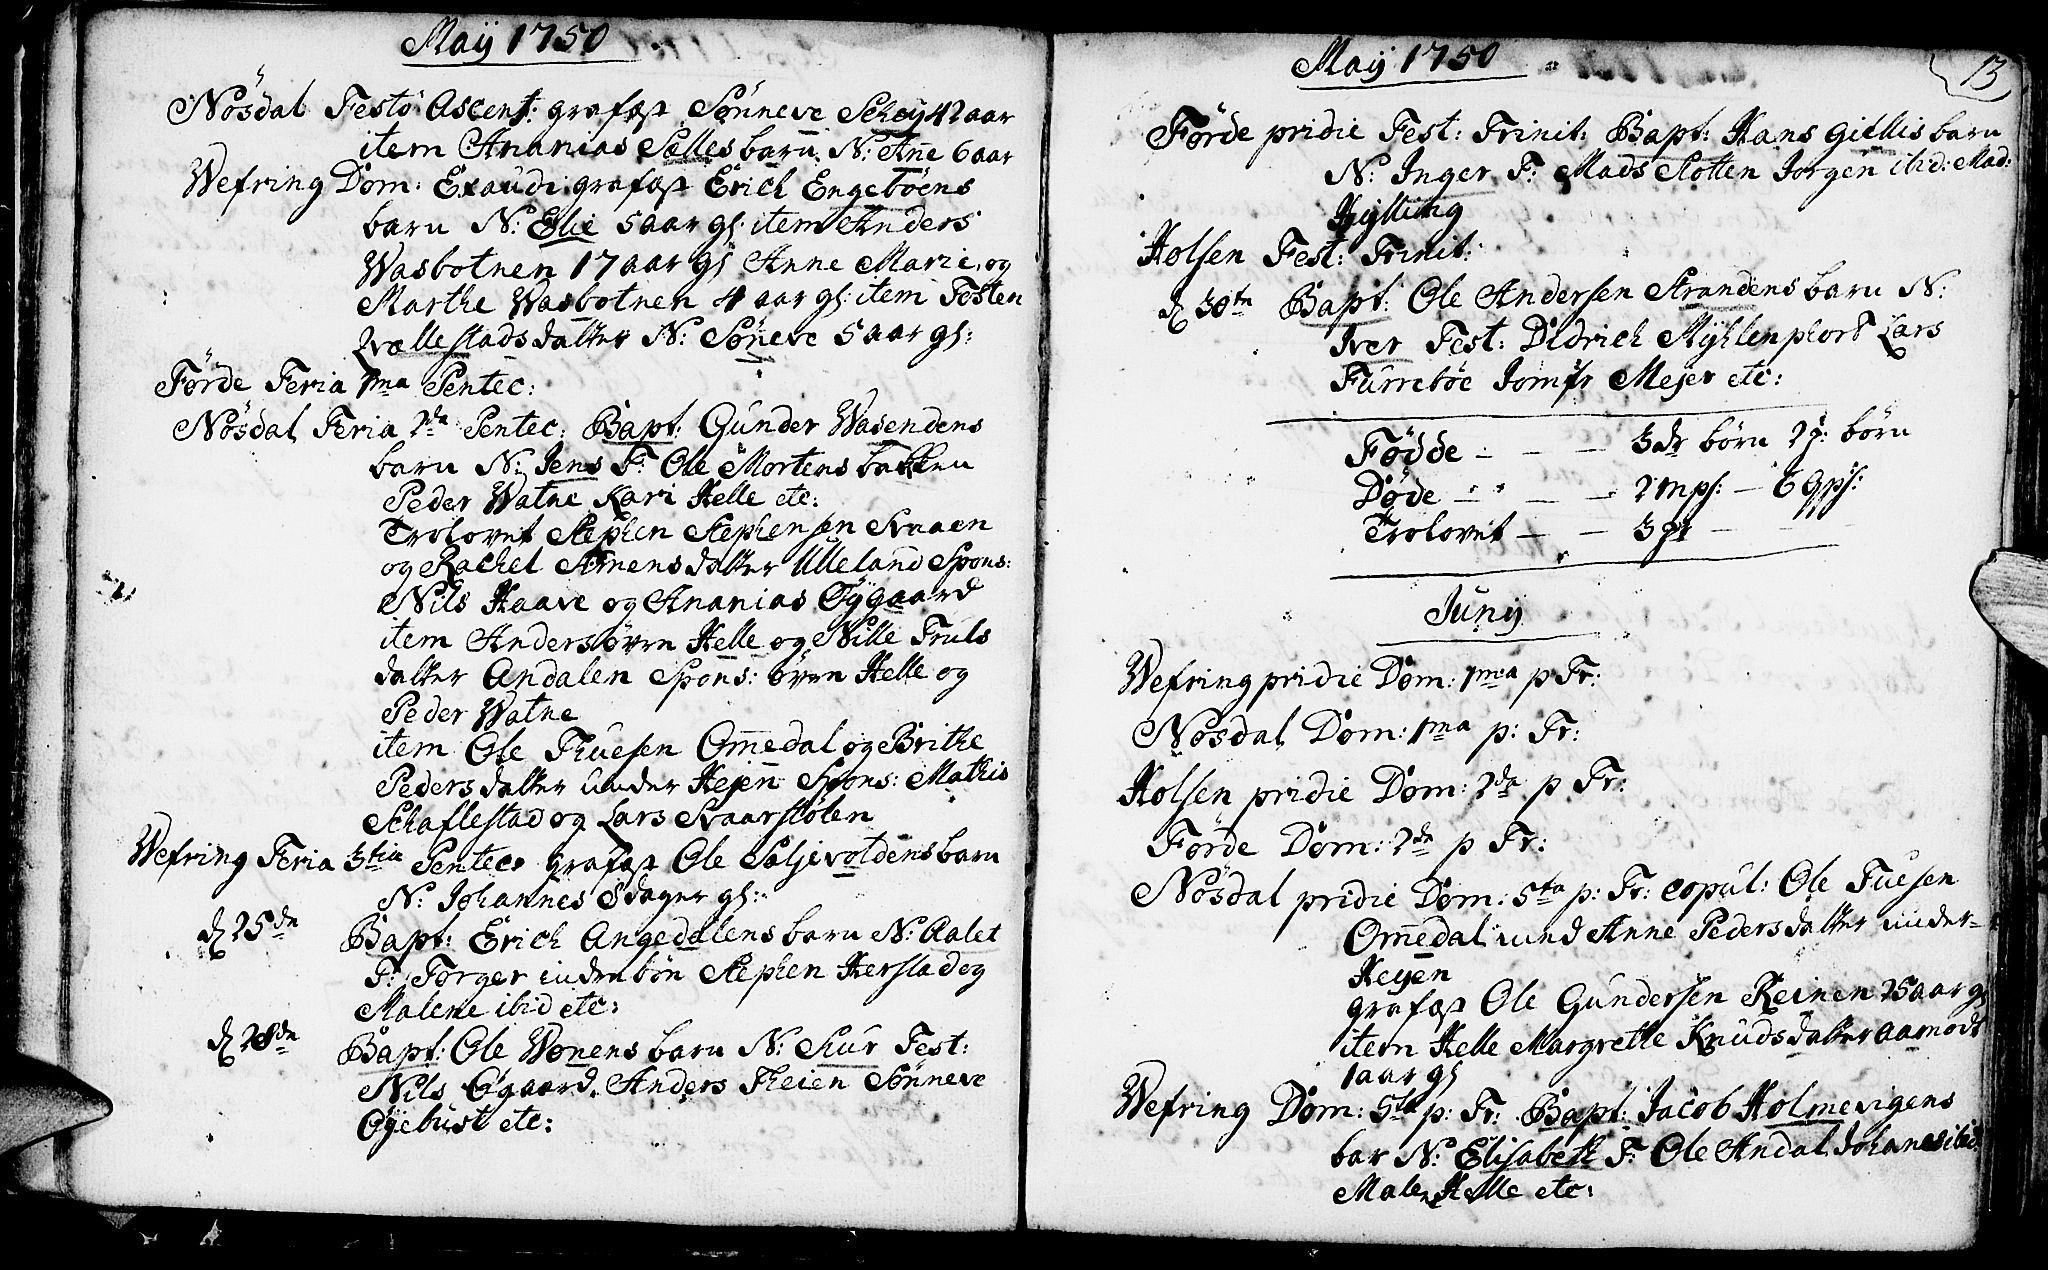 Maÿ 1750
Nøsdal Festo Ascent: grafæst Sønneve Schey 42 aar
item Ananias Solles barn. N: Ane 6 aar
Wefring Dom: Exaudi grafæst Erich Engebøens
barn N: Elie 5 aar gl: item Anders
Wasbotnen 17 aar gl Anne Marie, og
Marthe Wasbotnen 4 aar gl: item Tosten
Qvællestads datter N: Søneve 5 aar gl:
Førde Feria 1ma Pentec:
Nøsdal Feria 2da Pentec: Bapt: Gunder Wasendens
barn N: Jens F: Ole Mortens bakken
Peder Watne Kari Helle etc:
Trolovet Stephen Stephensen Kvaen
og Rachel Simensdatter Ulleland Spons:
Nils Haave og Ananias Øÿgaard
item Anders øvre Helle og Nille Truls
datter Andalen Spons: øvre Helle og
Peder Watne
item Ole Thuesen Omedal og Brithe
Pedersdatter under Hejen Spons: Mathis
Schaflestad og Lars Kvaarstølen
Wefring Feria 3tia Pentec: grafæst Ole Seljevoldens barn
N: Johannes 8 dager gl:
d 25de
Bapt: Erich Angedalens barn N: Aalet
F: Torger indrebøn Stephen Herstad og
Malene ibid etc:
d 28de
Bapt: Ole Wonens barn N: Siur Test:
Nils Øgaard. Anders Theien Sønneve
Øÿebust etc:
Maÿ 1750
13
Førde pridie Fest: Trinit: Bapt: Hans Gietlis barn
N: Inger F: Mads Slotten Jørgen ibid: Mad:
Hylling
Holsen Fest: Trinit:
d 30te
Bapt: Ole Andersen Strandens barn N:
Iver Test: Didrich Myhlenphort Lars
Furrebøe Jomfr Mejer etc:
Fødde — — — 3 dr børn 2 p: børn
Døde — — — 2 mps: — 6 qps:
Trolovet — — 3 pr
Junÿ
Wefring pridie Dom: 1ma p Tr:
Nøsdal Dom: 1ma p: Tr:
Holsen pridie Dom: 2da p Tr:
Førde Dom: 2da p Tr:
Nøsdal pridie Dom: 5ta p: Tr: copul: Ole Tuesen
Omedal und Anne Pedersdatter under-
Hejen
grafæst Ole Gundersen Reinen 25 aar gl
item Helle Margrethe Knudsdatter Aamodt
1 aar gl
Wefring Dom: 5ta p: Tr: Bapt: Jacob Holmevigens
bar N: Elisabeth F: Ole Andal Johanes ibid:
Male Helle etc: